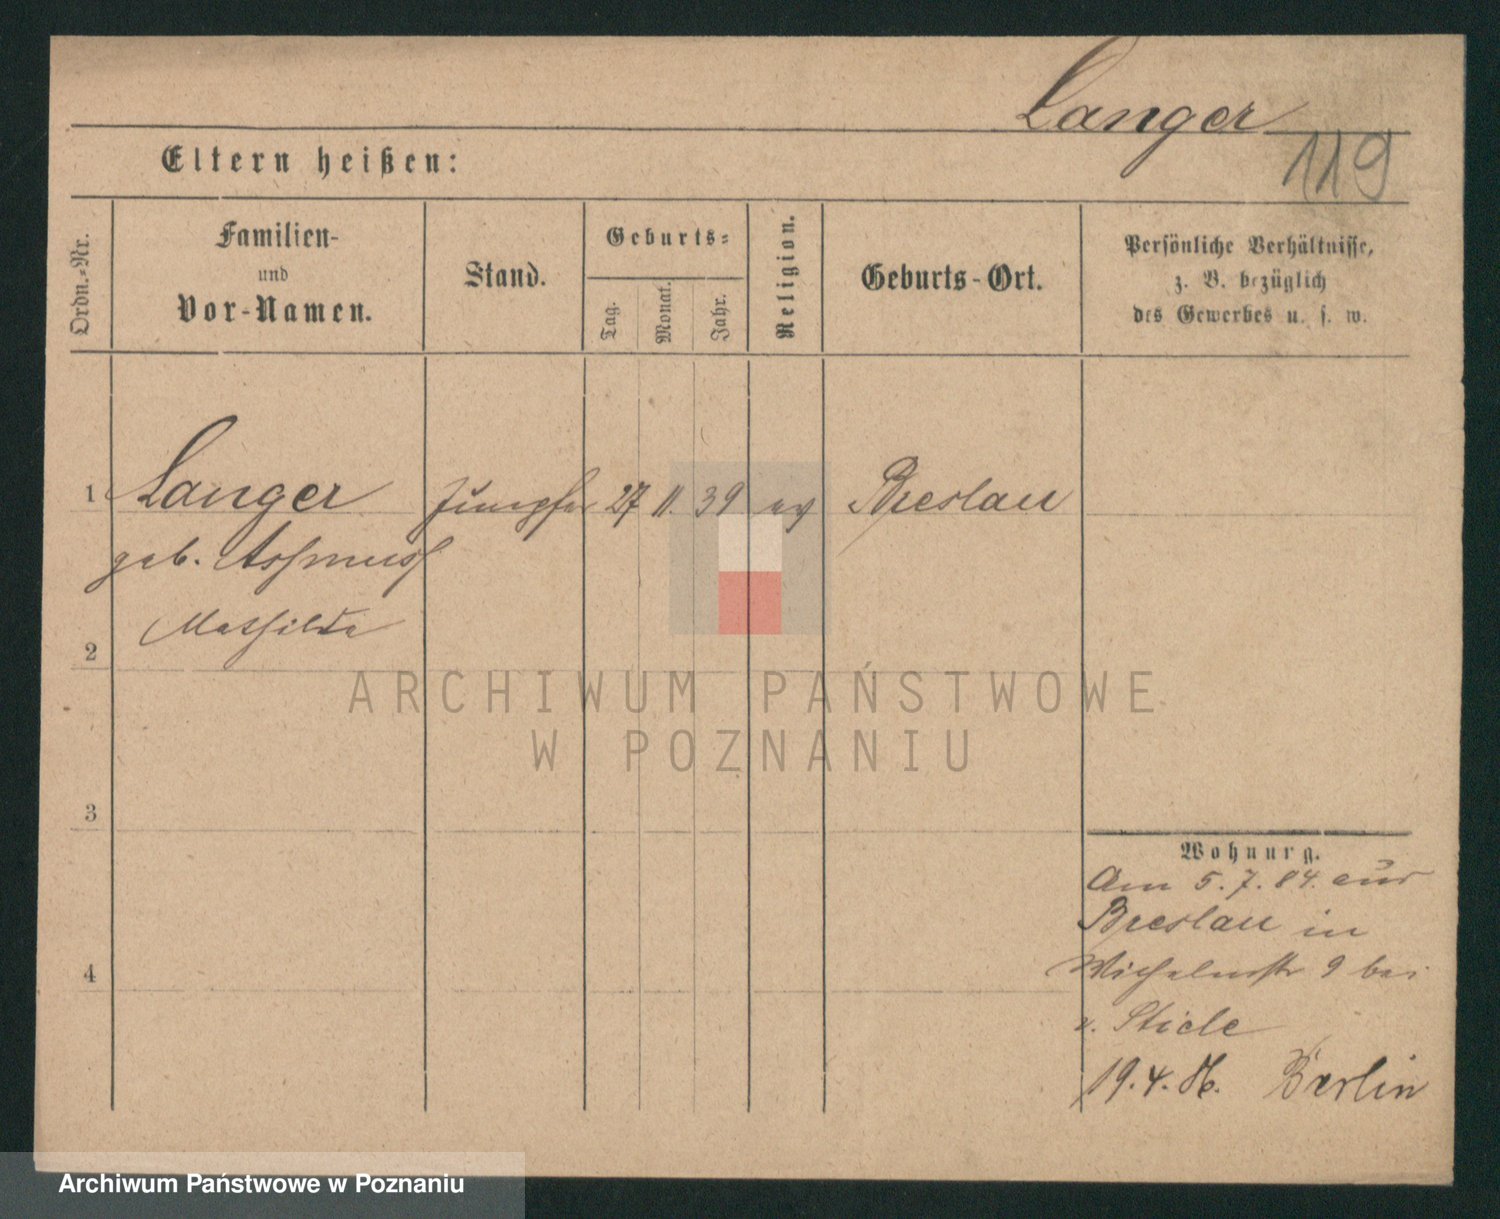 Langer
119
Eltern heißen:
Ordn.-Nr.
Familien-
und
Vor-Namen.
Stand.
Geburts-
Tag.
Monat.
Jahr.
Religion.
Geburts-Ort.
Persönliche Verhältnisse,
z. B. bezüglich
des Gewerbes u. s. w.
1 Langer Jungfer 27 11. 39 ev Breslau
geb. Assmuss
Mathilde
2
3
4
Wohnung.
Am 5.7.84. aus
Breslau in
Wilhelmstr 9 bei
v. Stiele
19.4.86. Berlin
ARCHIWUM PAŃSTWOWE
W POZNANIU
Archiwum Państwowe w Poznaniu